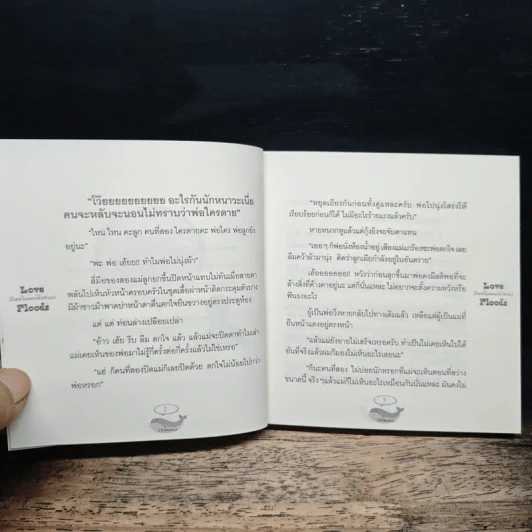 Love
Floods
"โว๊ยยยยยยยยยย อะไรกันนักหนาวะเนี่ย
คนจะหลับจะนอนไม่ทราบว่าพ่อใครตาย"
"ไหน ไหน คะลูก คนที่สอง ใครตายคะ พ่อใคร พ่อลูกยัง
อยู่นะ"
"พะ พ่อ เฮ้ยย!! ทำไมพ่อไม่นุ่งผ้า"
สี่มือของสองแม่ลูกยกขึ้นปิดหน้าแทบไม่ทันเมื่อสายตา
พลันไปเห็นหัวหน้าครอบครัวในชุดเสื้อผ่าหน้าติดกระดุมตัวบาง
มีผ้าขาวม้าพาดบ่าหน้าตาตื่นตกใจยืนขวางอยู่ตรงประตูห้อง
แต่ แต่ ท่อนล่างเปลือยเปล่า
"อ้าว เฮ้ย รีบ ลืม ตกใจ แล้ว แล้วแม่จะปิดตาทำไมเล่า
แม่เคยเห็นของพ่อมาไม่รู้กี่ครั้งต่อกี่ครั้งแล้วไม่ใช่เหรอ"
"แฮ่ ก็คนที่สองปิดแม่ก็เลยปิดด้วย ตกใจไม่น้อยไปกว่า
พ่อหรอก"
2
"หยุดเถียงกันก่อนทั้งคู่แหละครับ พ่อไปนุ่งโสร่งให้
เรียบร้อยก่อนก็ได้ ไม่มีอะไรร้ายแรงแล้วครับ"
หายหนวกหูแล้วแต่กุ้งยิงจะจับตาแทน
"เออๆ ก็พ่อนั่งห้องน้ำอยู่ เสียงแม่แกร้องซะพ่อตกใจ เลย
ลืมคว้าผ้ามานุ่ง คิดว่าลูกเมียกำลังอยู่ในอันตราย"
ผู้เป็นพ่อวิ่งหายกลับไปทางเดิมแล้ว เหลือแต่ผู้เป็นแม่ที่
ยืนหน้าแดงอยู่ตรงหน้า
"แล้วแม่ยังอายไม่เสร็จเหรอครับ ทำเป็นไม่เคยเห็นไปได้
3
Love
Floods